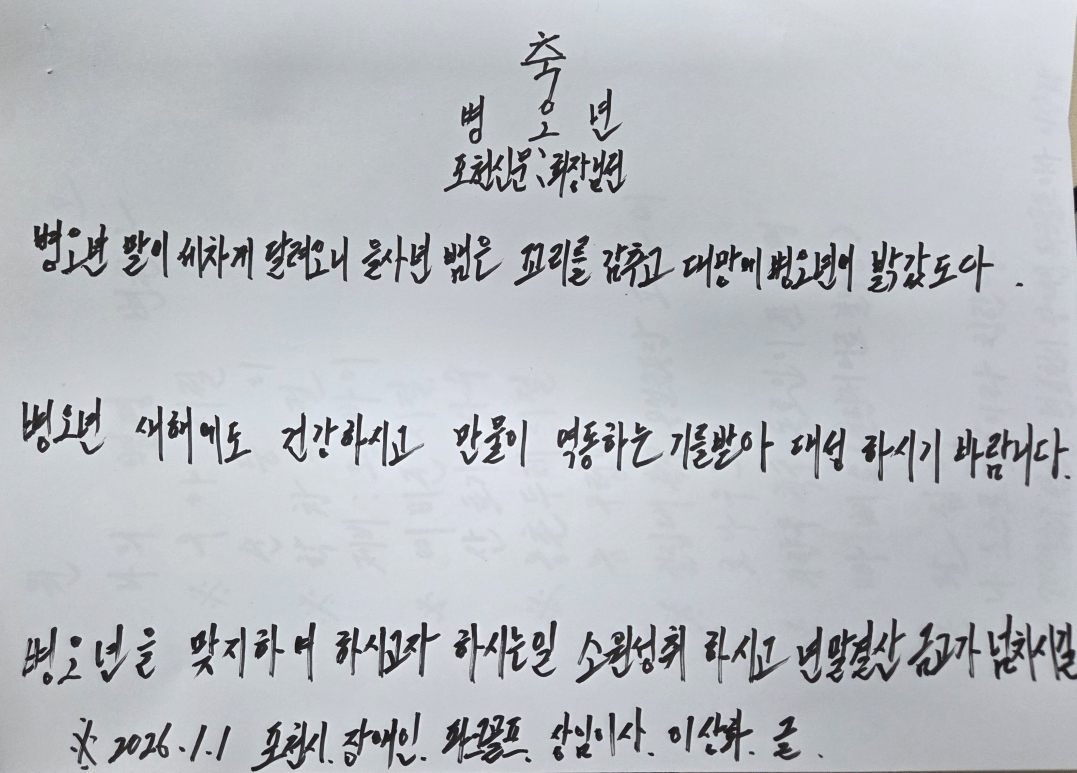 축
병 오 년
포천신문; 회장님전
병오년 말이 세차게 달려오니 을사년 뱀은 꼬리를 감추고 대망에 병오년이 밝았도다.
병오년 새해에도 건강하시고 만물이 역동하는 기를받아 대성 하시기 바람니다.
병오년을 맞지하여 하시고자 하시는일 소원성취 하시고 년말결산 금고가 넘차시길
※ 2026.1.1 포천시. 장애인. 파크골프. 상임이사. 이상화. 글.